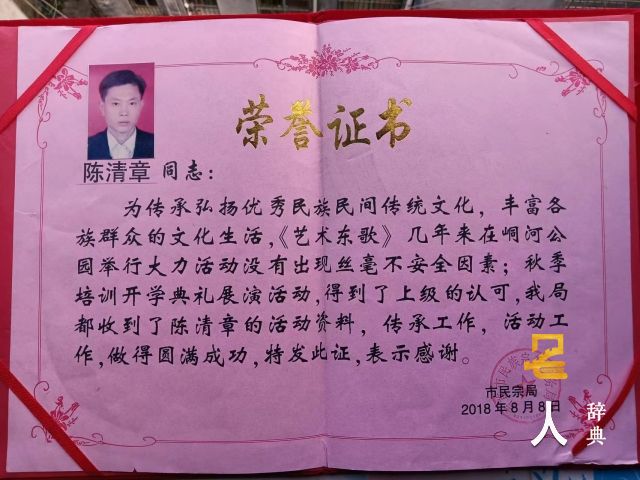 荣誉证书
陈清章 同志：
为传承弘扬优秀民族民间传统文化，丰富各
族群众的文化生活，《艺术东歌》几年来在峒河公
园举行大力活动没有出现丝毫不安全因素；秋季
培训开学典礼展演活动，得到了上级的认可，我局
都收到了陈清章的活动资料，传承工作，活动工
作，做得圆满成功，特发此证，表示感谢。
市民宗局
2018年8月8日
名人
辞典